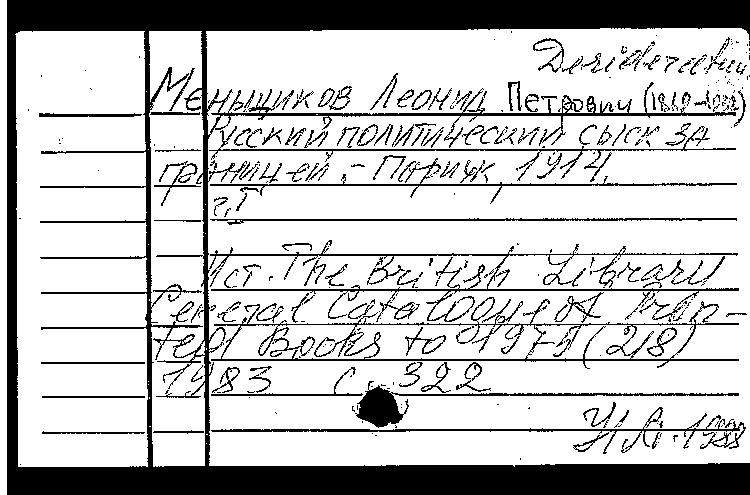 Desideratum
Меньщиков Леонид Петрович (1869-1932)
Русский политический сыск за
границей. - Париж, 1914.
г.I
Ист. The British Library
General Catalogue of Prin-
ted Books to 1975 (218)
1983 с. 322